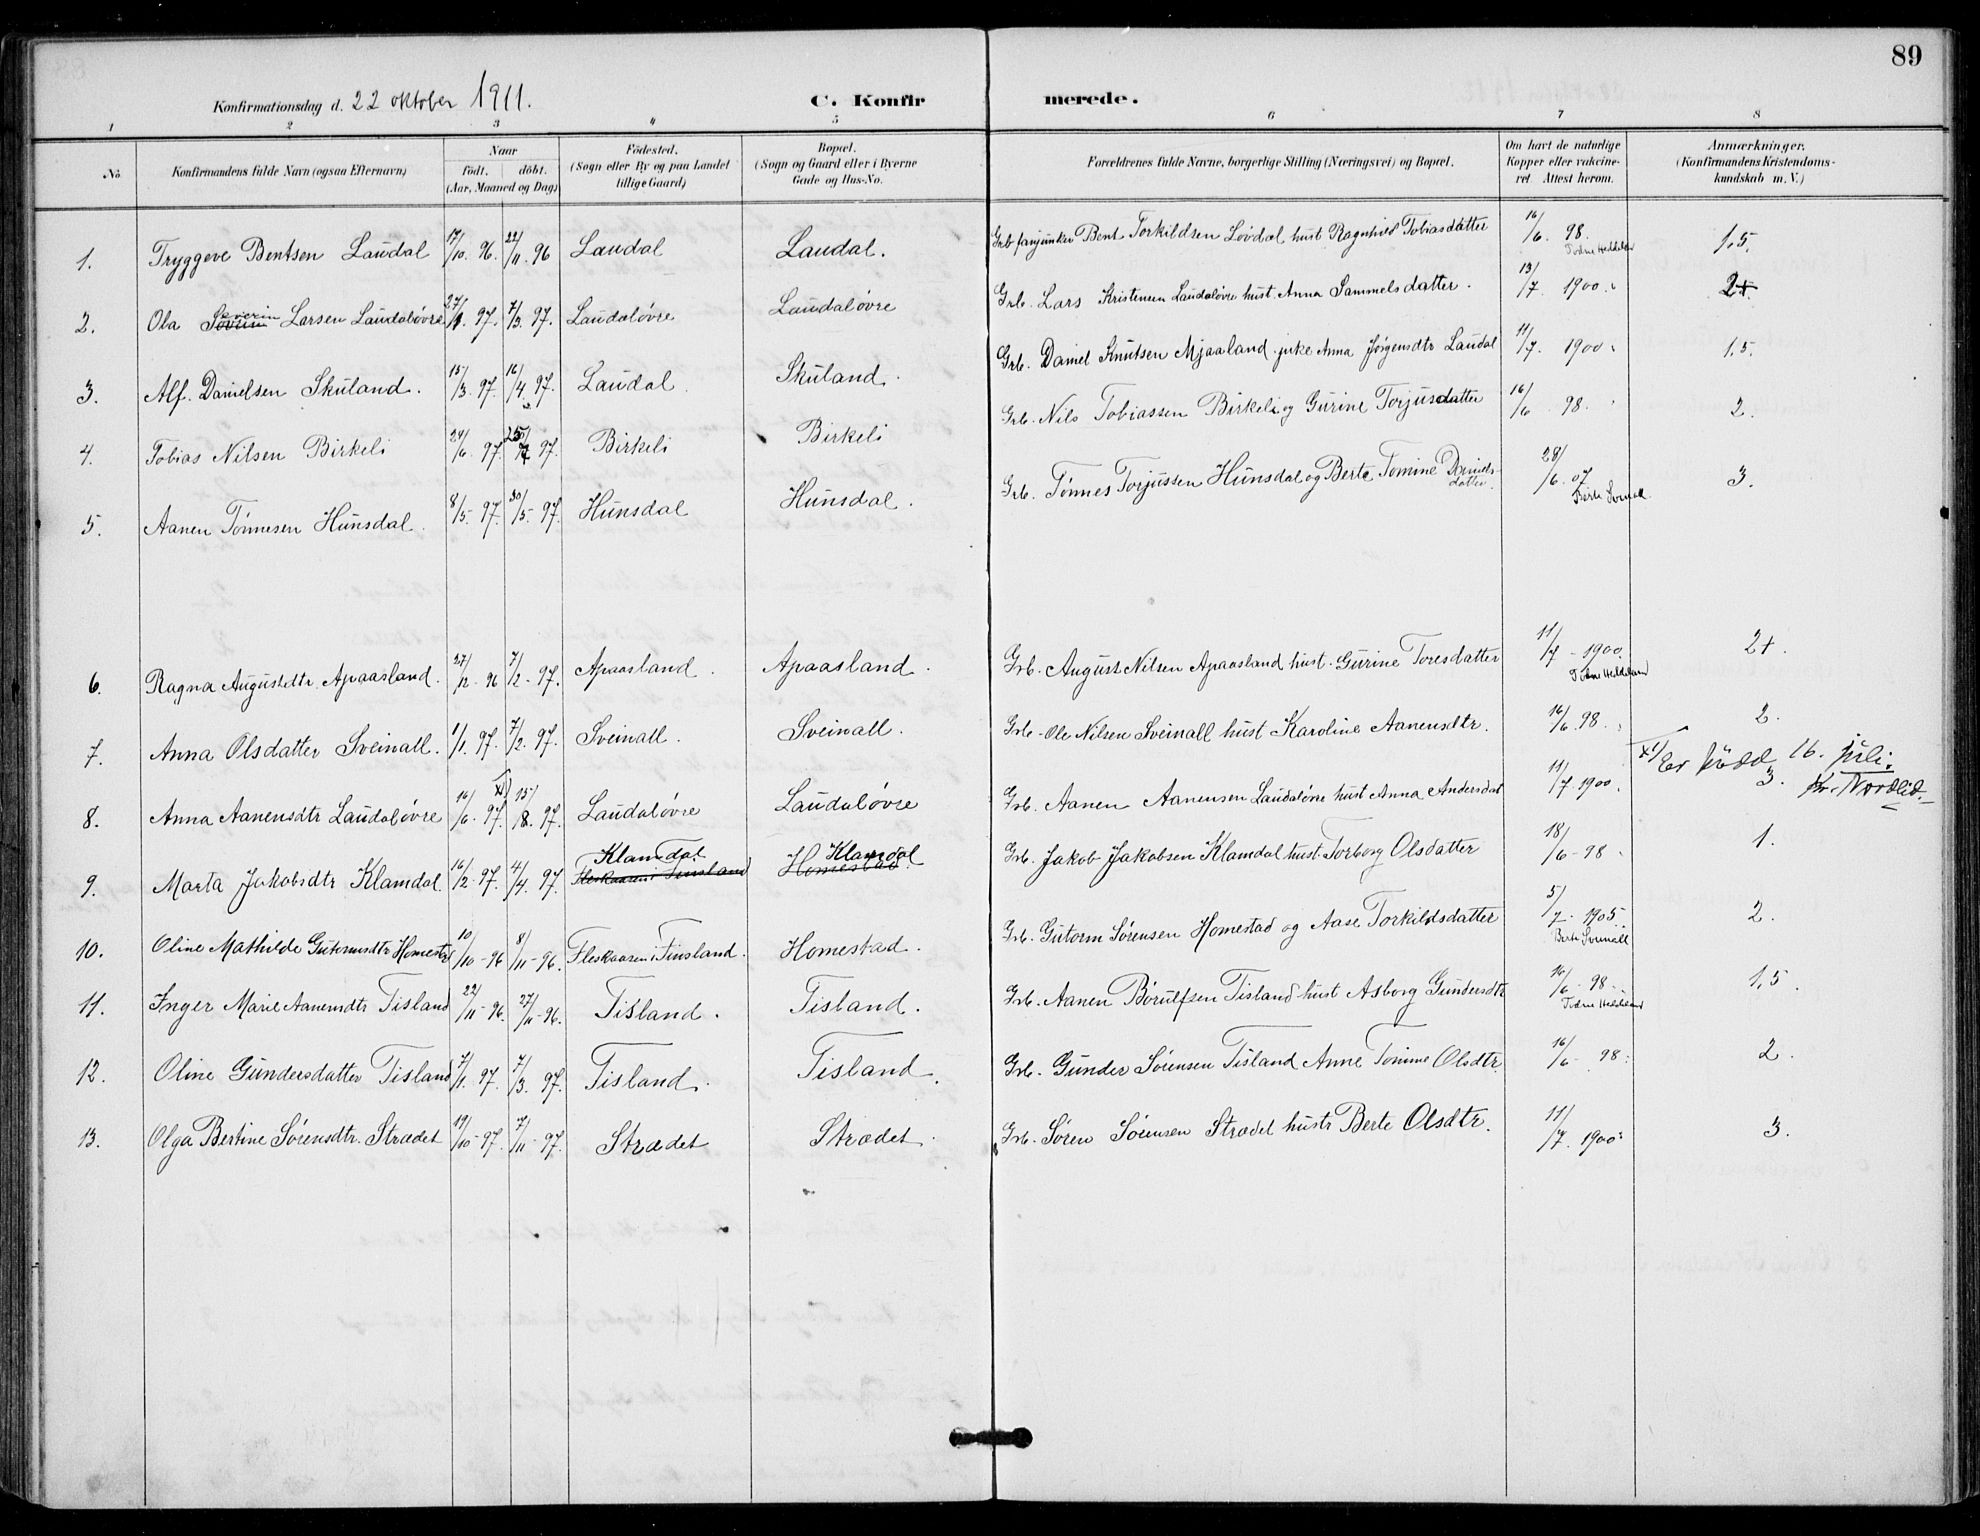 89
Konfirmationsdag d. 22 oktober 1911. C. Konfirmerede.
1 2 3 4 5 6 7 8
No. Konfirmandens fulde Navn (ogsaa Efternavn) Naar født. døbt. (Aar, Maaned og Dag) Fødested. (Sogn eller By og paa Landet tillige Gaard) Bopæl. (Sogn og Gaard eller i Byerne Gade og Hus-No. Forældrenes fulde Navne, borgerlige Stilling (Næringsvei) og Bopæl. Om havt de naturlige Kopper eller vakcineret. Attest herom. Anmærkninger. (Konfirmandens Kristendomskundskab m. V.)
1. Tryggeve Bentsen Laudal 17/10. 96. 22/11. 96 Laudal Laudal. Grb. fanjunker Bent Torkildsen Lövdal hust Ragnhild Tobiasdatter 16/6. 98. 1,5.
2. Ola Severin Larsen Laudaløvre 27/1. 97. 7/3. 97. Laudaløvre Laudaløvre Grb. Lars Kristensen Laudaløvre hust. Anna Sammelsdatter. 13/7. 1900. 2+
3. Alf. Danielsen Skuland. 15/3. 97. 16/4. 97. Laudal Skuland. Grb. Daniel Knutsen Mjaaland pike Anna Jørgensdtr Laudal 11/7. 1900. 1,5.
4. Tobias Nilsen Birkeli 24/6. 97. 25/7 97. Birkeli Birkeli Grb. Nils Tobiassen Birkeli og Gurine Torjusdatter 16/6 98. 2.
5. Aanen Tønnesen Hunsdal. 8/5. 97. 30/5. 97. Hunsdal Hunsdal. Grb. Tønnes Torjussen Hunsdal og Berte Tomine Danielsdatter. 28/6. 07 3.
6. Ragna Augustdtr. Apaasland. 27/12. 96 7/2. 97. Apaasland. Apaasland. Grb. August Nilsen Apaasland hust. Gurine Toresdatter 11/7 - 1900. 2+.
7. Anna Olsdatter Sveinall. 1/1. 97. 7/2. 97. Sveinall. Sveinall. Grb. Ole Nilsen Sveinall hust Karoline Aanensdtr. 16/6. 98. 2.
x) Er född 16. juli. Kr. Nordlid.
8. Anna Aanensdtr Laudaløvre 16/6. 97. x) 15/8. 97. Laudaløvre Laudaløvre Grb. Aanen Aanensen Laudaløvre hust Anna Andersdat 11/7 1900. 3.
9. Marta Jakobsdtr Klamdal. 16/2. 97. 4/4. 97. Klamdal. Fleskaasen i Finsland Klamdal Homestad. Grb. Jakob Jakobsen Klamdal hust. Torborg Olsdatter 18/6 - 98 1.
10. Oline Mathilde Gutormsdtr Homestad 10/10 - 96 8/11 - 96. Fleskaasen i Finsland. Homestad. Grb. Gutorm Sørensen Homestad og Aase Torkildsdatter 5/7. 1905. 2.
11. Inger Marie Aanensdtr Tisland 22/11 - 96. 27/11 - 96. Tisland. Tisland. Grb. Aanen Børulfsen Tisland hust Asborg Gundersdtr 16/6 - 98. 1,5.
12. Oline Gundersdatter Tisland 7/1. 97. 7/3. 97. Tisland. Tisland. Grb. Gunder Sørensen Tisland Anne Tomine Olsdtr. 16/6 - 98. 2.
13. Olga Bertine Sørensdtr. Strædet 19/10 - 97. 7/11 - 97. Strædet Strædet. Grb. Søren Sørensen Strædet hustr Berte Olsdtr. 11/7. 1900. 3.